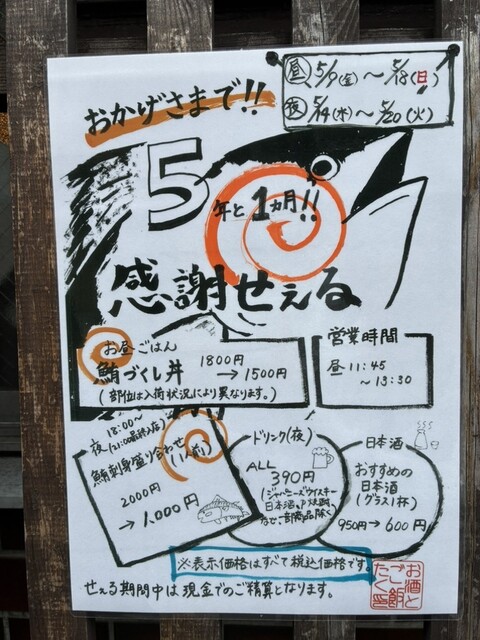 おかげさまで!!
昼 5/9(金)～5/18(日)
夜 5/14(水)～5/20(火)
5年と1ヵ月!!
感謝せぇる
お昼ごはん
鮪づくし丼 1800円→1500円
(部位は入荷状況により異なります。)
営業時間
昼11:45
～13:30
夜 18:00～
(21:00最終入店)
鮪刺身盛り合わせ(1人前)
2000円
→1,000円
ドリンク(夜)
ALL
390円
(ジャパニーズウイスキー
日本酒、
など一部商品除く)
日本酒
おすすめの
日本酒
(グラス1杯)
950円→600円
※表示価格はすべて税込価格です。
せぇる期間中は現金でのご精算となります。
お酒と
づし飯